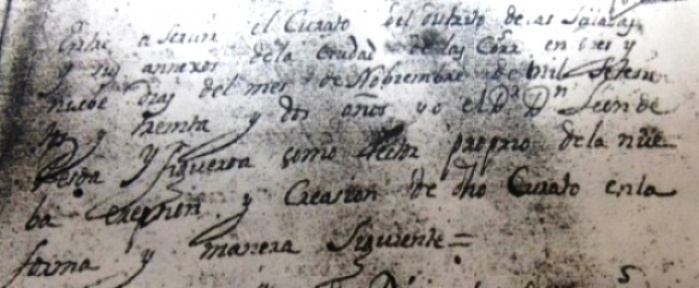 Entre a Servir el Curato del distrito de las
y sus annexos de la Ciudad de las Corr.s en tres y
nuebe Dias del mes de Nobrembre de mil setesien
tos y treinta y dos años yo el Dr. Dn
y figueroa como Rector proprio de la nue
ba ereption y Creasion de dho Curato en la
forma y manera Siguiente =